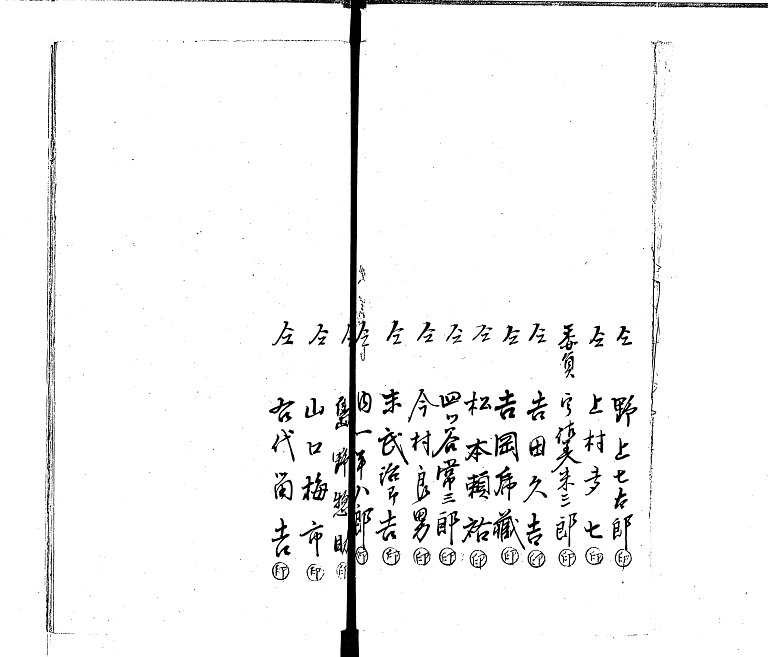 仝 野上七右郎 ㊞
仝 上村多七 ㊞
委員 末三郎 ㊞
仝 吉田久吉 ㊞
仝 吉岡席藏 ㊞
仝 松本頼祐 ㊞
仝 四ッ谷常三郎 ㊞
仝 今村良男 ㊞
仝 吉 ㊞
仝 内一 八郎 ㊞
仝 野惣助 ㊞
仝 山口梅市 ㊞
仝 右代留吉 ㊞